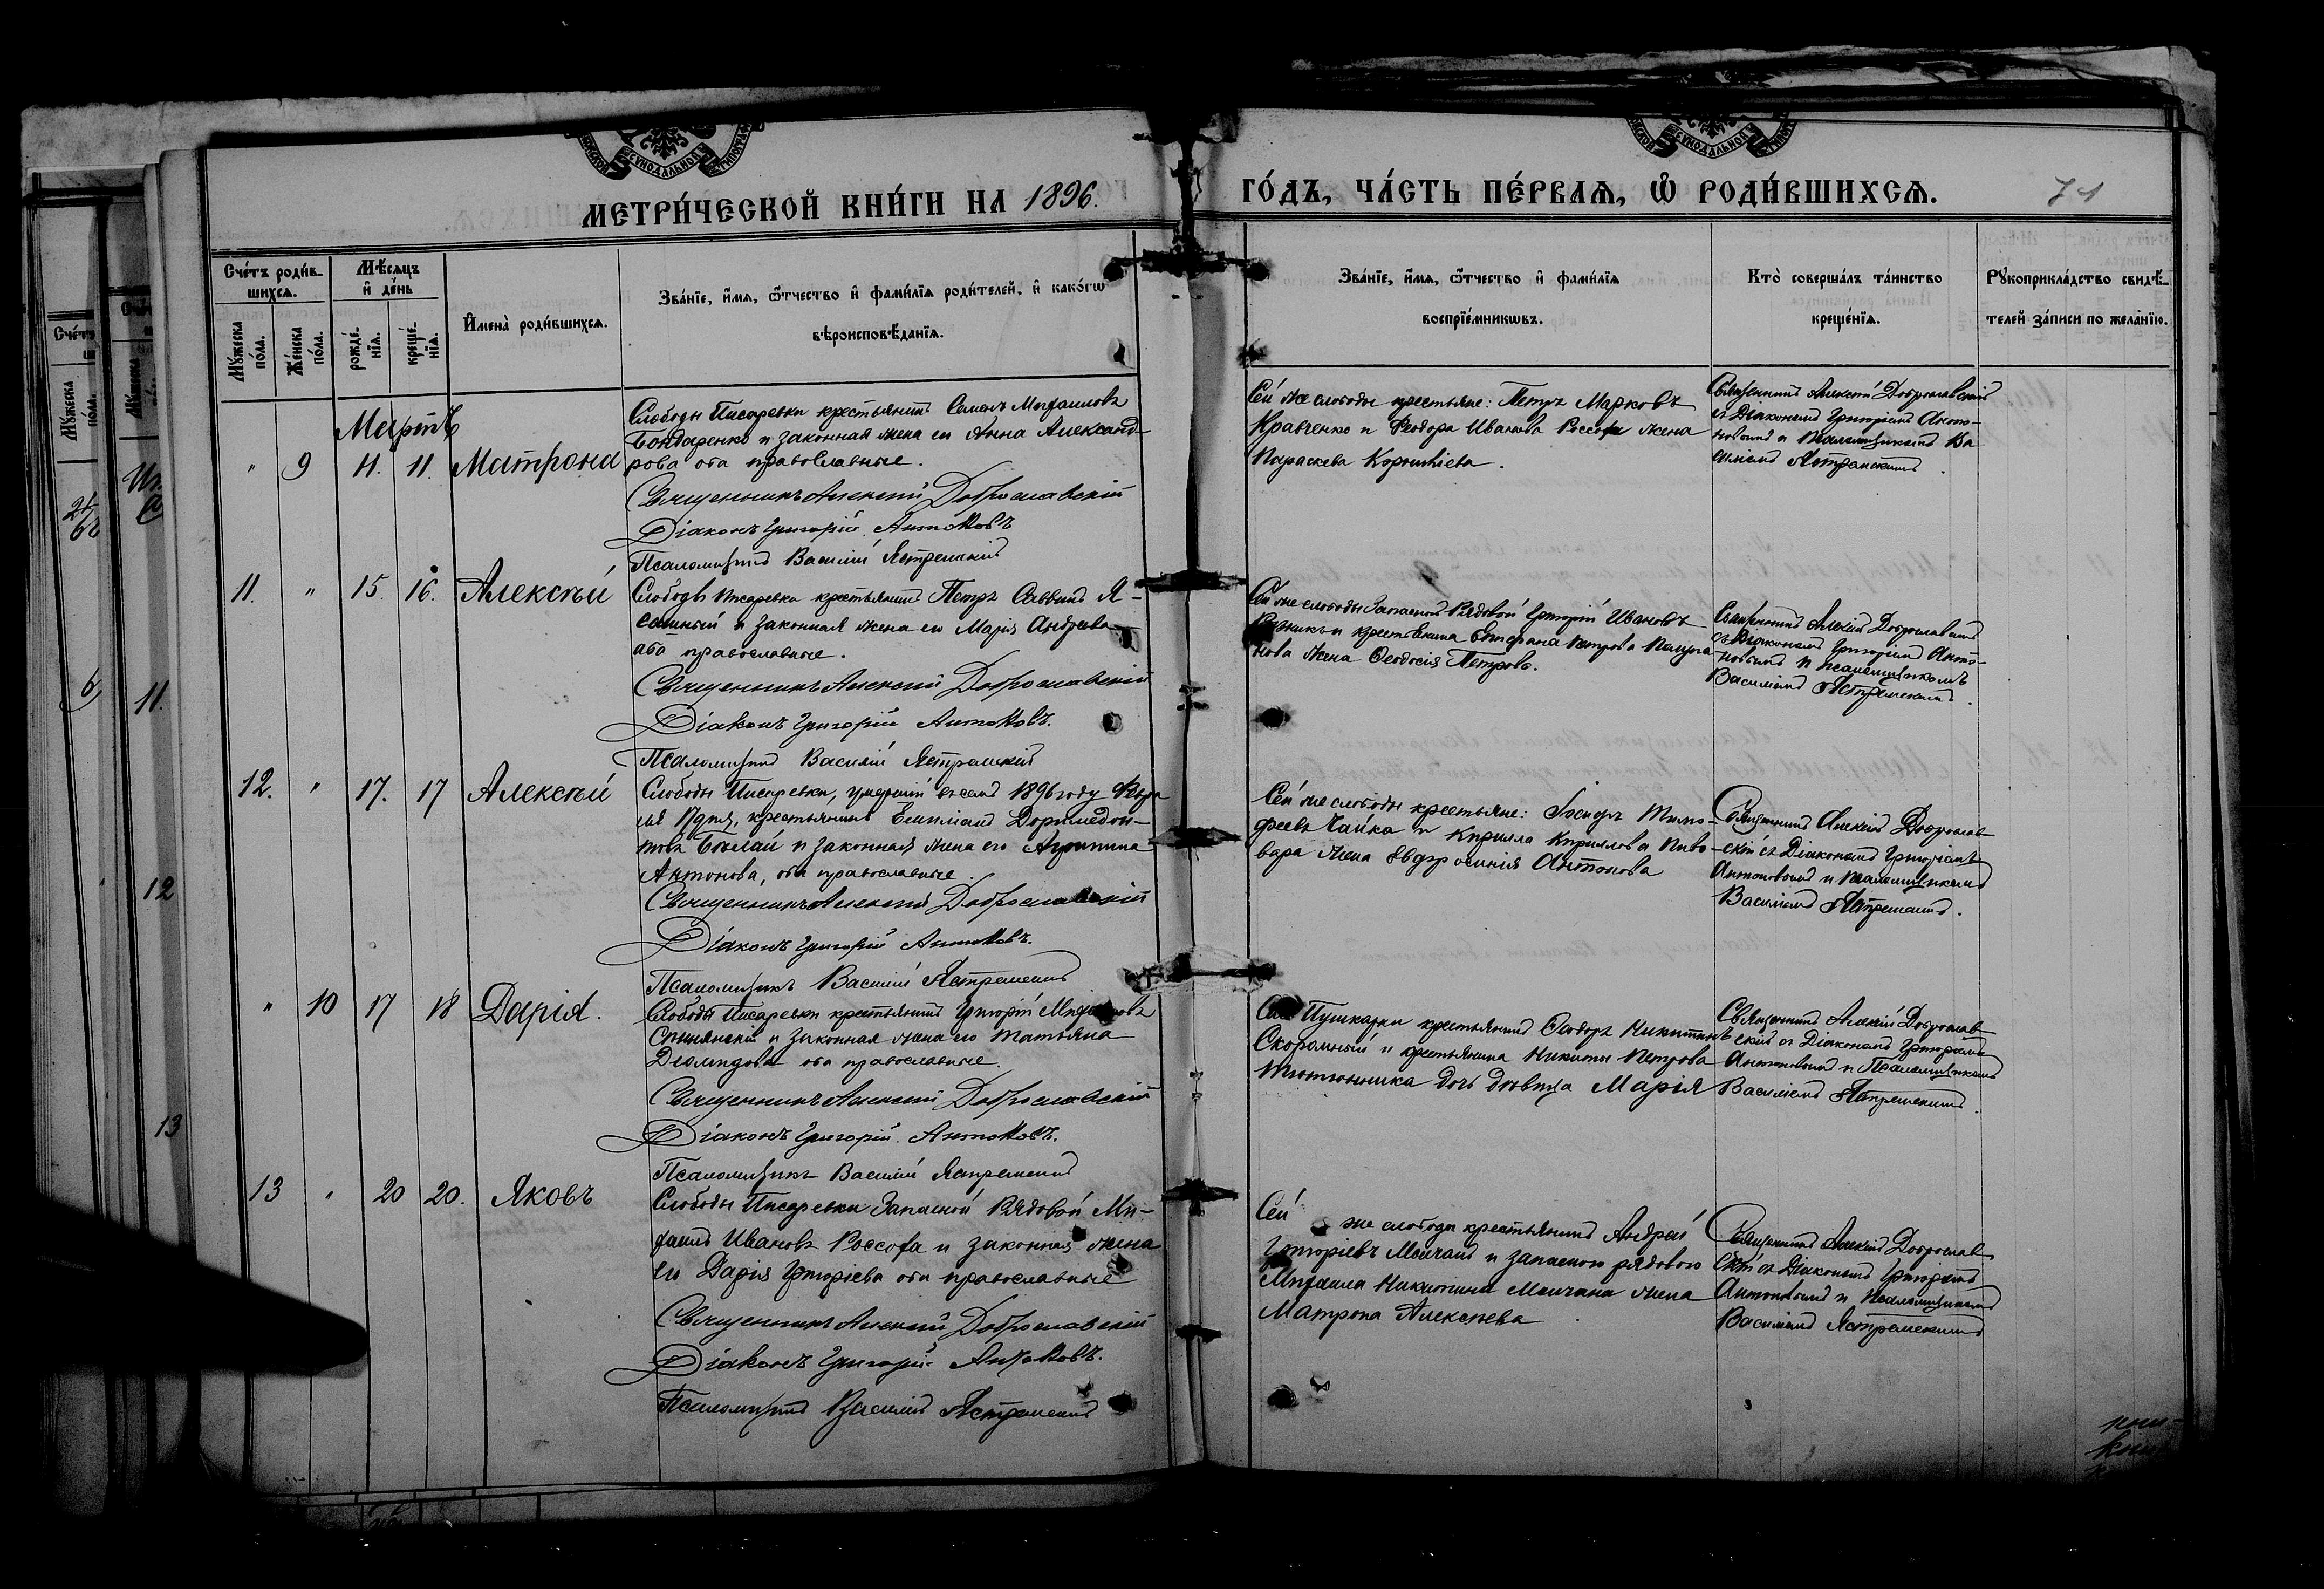 МЕТРИ́ЧЕСКОЙ КНИ́ГИ НА 1896.
ГО́ДЪ, ЧА́СТЬ ПЕ́РВАѦ, Ѡ РОДИ́ВШИХСѦ.
71
Сче́тъ роди́в-
шихсѧ.
Мѣ́сѧцъ
и де́нь
Мꙋ́жеска по́ла.
Же́нска по́ла.
рожде́-
нїѧ.
креще́-
нїѧ.
Имена̀ роди́вшихсѧ.
Зва́нїе, и́мѧ, ѻ́тчество и фами́лїѧ роди́телей, и како́гѡ
вѣроисповѣ́данїѧ.
Зва́нїе, и́мѧ, ѻ́тчество и фами́лїѧ
воспрїе́мникѡвъ.
Кто̀ соверша́лъ та́инство
креще́нїѧ.
Рꙋкоприкла́дство свидѣ́-
телей за́писи по жела́нїю.
Мартъ
" 9 11. 11. Матрона
Слободы Писаревки крестьянинъ Семенъ Михаиловъ
Бондаренко и законная жена его Анна Александ-
рова оба православные.
Священникъ Алексій Доброславскій
Діаконъ Григорій Антоновъ
Псаломщикъ Василій Ястремскій
Сей же слободы крестьяне: Петръ Марковъ
Кравченко и Ѳеодора Иванова Россоха жена
Параскева Корнилieва.
Священникъ Алексій Доброславскій
съ Діакономъ Григоріемъ Анто-
новымъ и Псаломщикомъ Ва
силіемъ Ястремскимъ
11. " 15. 16. Алексѣй
Слободы Писаревки крестьянинъ Петръ Саввинъ
и законная жена его Марія Андреева
оба православные.
Священникъ Алексій Доброславскій
Діаконъ Григорій Антоновъ.
Псаломщикъ Василій Ястремскій
Сей же слободы Запасной Рядовой Григорій Ивановъ
и крестьянина Петрова
жена Ѳеодосія Петрова.
Священникъ Алексій Доброславскій
съ Діакономъ Григоріемъ Анто-
новымъ и псаломщикомъ
Василіемъ Ястремскимъ.
12. " 17. 17 Алексѣй
Слободы Писаревки, умершій въ семъ 1896 году Февра
ля 17 дня, крестьянинъ Доримедон-
товъ и законная жена его Агрипина
Антонова, оба православные.
Священникъ Алексій Доброславскій
Діаконъ Григорій Антоновъ.
Псаломщикъ Василій Ястремскій
Сей же слободы крестьяне: Тимо-
феевъ Чайка и Кирилла Кириллова Пиво-
вара жена Евдокія Антонова
Священникъ Алексій Доброслав-
скій съ Діакономъ Григоріемъ
Антоновымъ и псаломщикомъ
Василіемъ Ястремскимъ.
" 10 17 18 Дарія.
Слободы Писаревки крестьянинъ Григорій Михаиловъ
и законная жена его Татьяна
оба православные.
Священникъ Алексій Доброславскій
Діаконъ Григорій Антоновъ.
Псаломщикъ Василій Ястремскій
Пушкарки крестьянинъ Ѳеодоръ Никитинъ
Скоромный и крестьянина Никиты Петрова
Тютюнника дочь дѣвица Марія
Священникъ Алексій Доброслав-
скій съ Діакономъ Григоріемъ
Антоновымъ и Псаломщикомъ
Василіемъ Ястремскимъ.
13 " 20 20. Яковъ
Слободы Писаревки Запасной Рядовой Ми-
хаилъ Ивановъ Россоха и законная жена
его Дарія Григоріева оба православные
Священникъ Алексій Доброславскій
Діаконъ Григорій Антоновъ.
Псаломщикъ Василій Ястремскій
Сей же слободы крестьянинъ Андрей
Григоріевъ Молчанъ и запасного рядового
Михаила Никитина Молчана жена
Матрона Алексѣева
Священникъ Алексій Доброслав
скій съ Діакономъ Григоріемъ
Антоновымъ и псаломщикомъ
Василіемъ Ястремскимъ